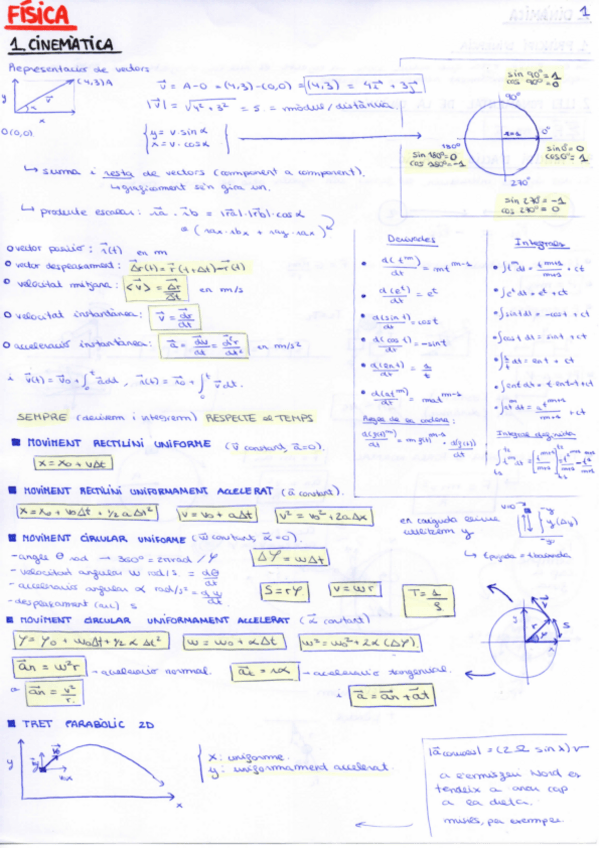 FÍSICA
1
1 CINEMÀTICA
Representació de vectors
(4,3) A
y
x
O(0,0)
v⃗ = A-O = (4,3)-(0,0) = (4,3) = 4i⃗ + 3j⃗
|v⃗| = √(4² + 3²) = 5 = mòdul/distància
{ y = v·sin α
x = v·cos α
sin 90º = 1
cos 90º = 0
90º
180º
0º
sin 180º = 0
cos 180º = -1
sin 0º = 0
cos 0º = 1
270º
sin 270º = -1
cos 270º = 0
↳ suma i resta de vectors (component a component).
↳ producte escalar: r⃗a · r⃗b = |r⃗a|·|r⃗b|·cos α
o vector posició: r⃗(t) en m
o vector desplaçament: Δr⃗(t) = r⃗(t+Δt) - r⃗(t)
o velocitat mitjana: <v⃗> = Δr⃗/Δt en m/s
o velocitat instantània: v⃗ = dr⃗/dt
o acceleració instantània: a⃗ = dv⃗/dt = d²r⃗/dt² en m/s²
i v⃗(t) = v⃗₀ + ∫₀ᵗ a⃗ dt, r⃗(t) = r⃗₀ + ∫₀ᵗ v⃗ dt.
SEMPRE (derivem i integrem) RESPECTE el TEMPS
Derivades
• d(tᵐ)/dt = m tᵐ⁻¹
• d(eᵗ)/dt = eᵗ
• d(sin t)/dt = cos t
• d(cos t)/dt = -sin t
• d(ln t)/dt = 1/t
Regla de la cadena:
Integrals
• ∫tᵐ dt = tᵐ⁺¹/m+1 + ct
• ∫eᵗ dt = eᵗ + ct
• ∫sin t dt = -cos t + ct
• ∫cos t dt = sin t + ct
• ∫1/t dt = ln t + ct
Integral definida
■ MOVIMENT RECTILINI UNIFORME (v⃗ constant, a⃗=0).
x = x₀ + vΔt
■ MOVIMENT RECTILINI UNIFORMAMENT ACCELERAT (a⃗ constant).
x = x₀ + v₀Δt + 1/2 a Δt²
v = v₀ + aΔt
v² = v₀² + 2aΔx
en caiguda lliure
utilitzem y
v=0
y (Δy)
↳ tpujada = tbaixada
■ MOVIMENT CIRCULAR UNIFORME (ω⃗ constant, α⃗=0).
- angle θ rad → 360º = 2π rad / φ
- velocitat angular ω rad/s = dθ/dt
- acceleració angular α rad/s² = dω/dt
- desplaçament (arc) s
Δφ = ωΔt
S = rφ
v = ωr
■ MOVIMENT CIRCULAR UNIFORMAMENT ACCELERAT (α⃗ constant)
φ = φ₀ + ω₀Δt + 1/2 α Δt²
ω = ω₀ + αΔt
ω² = ω₀² + 2α(Δφ)
a⃗n = ω²r - acceleració normal.
a⃗t = rα - acceleració tangencial.
o a⃗n = v²/r
i a⃗ = a⃗n + a⃗t
■ TRET PARABÒLIC 2D
y
x
{ x: uniforme.
y: uniformament accelerat.
|a⃗coriolis| = (2 Ω sin λ) v
a l'emisferi Nord es
tendeix a anar cap
a la dreta.